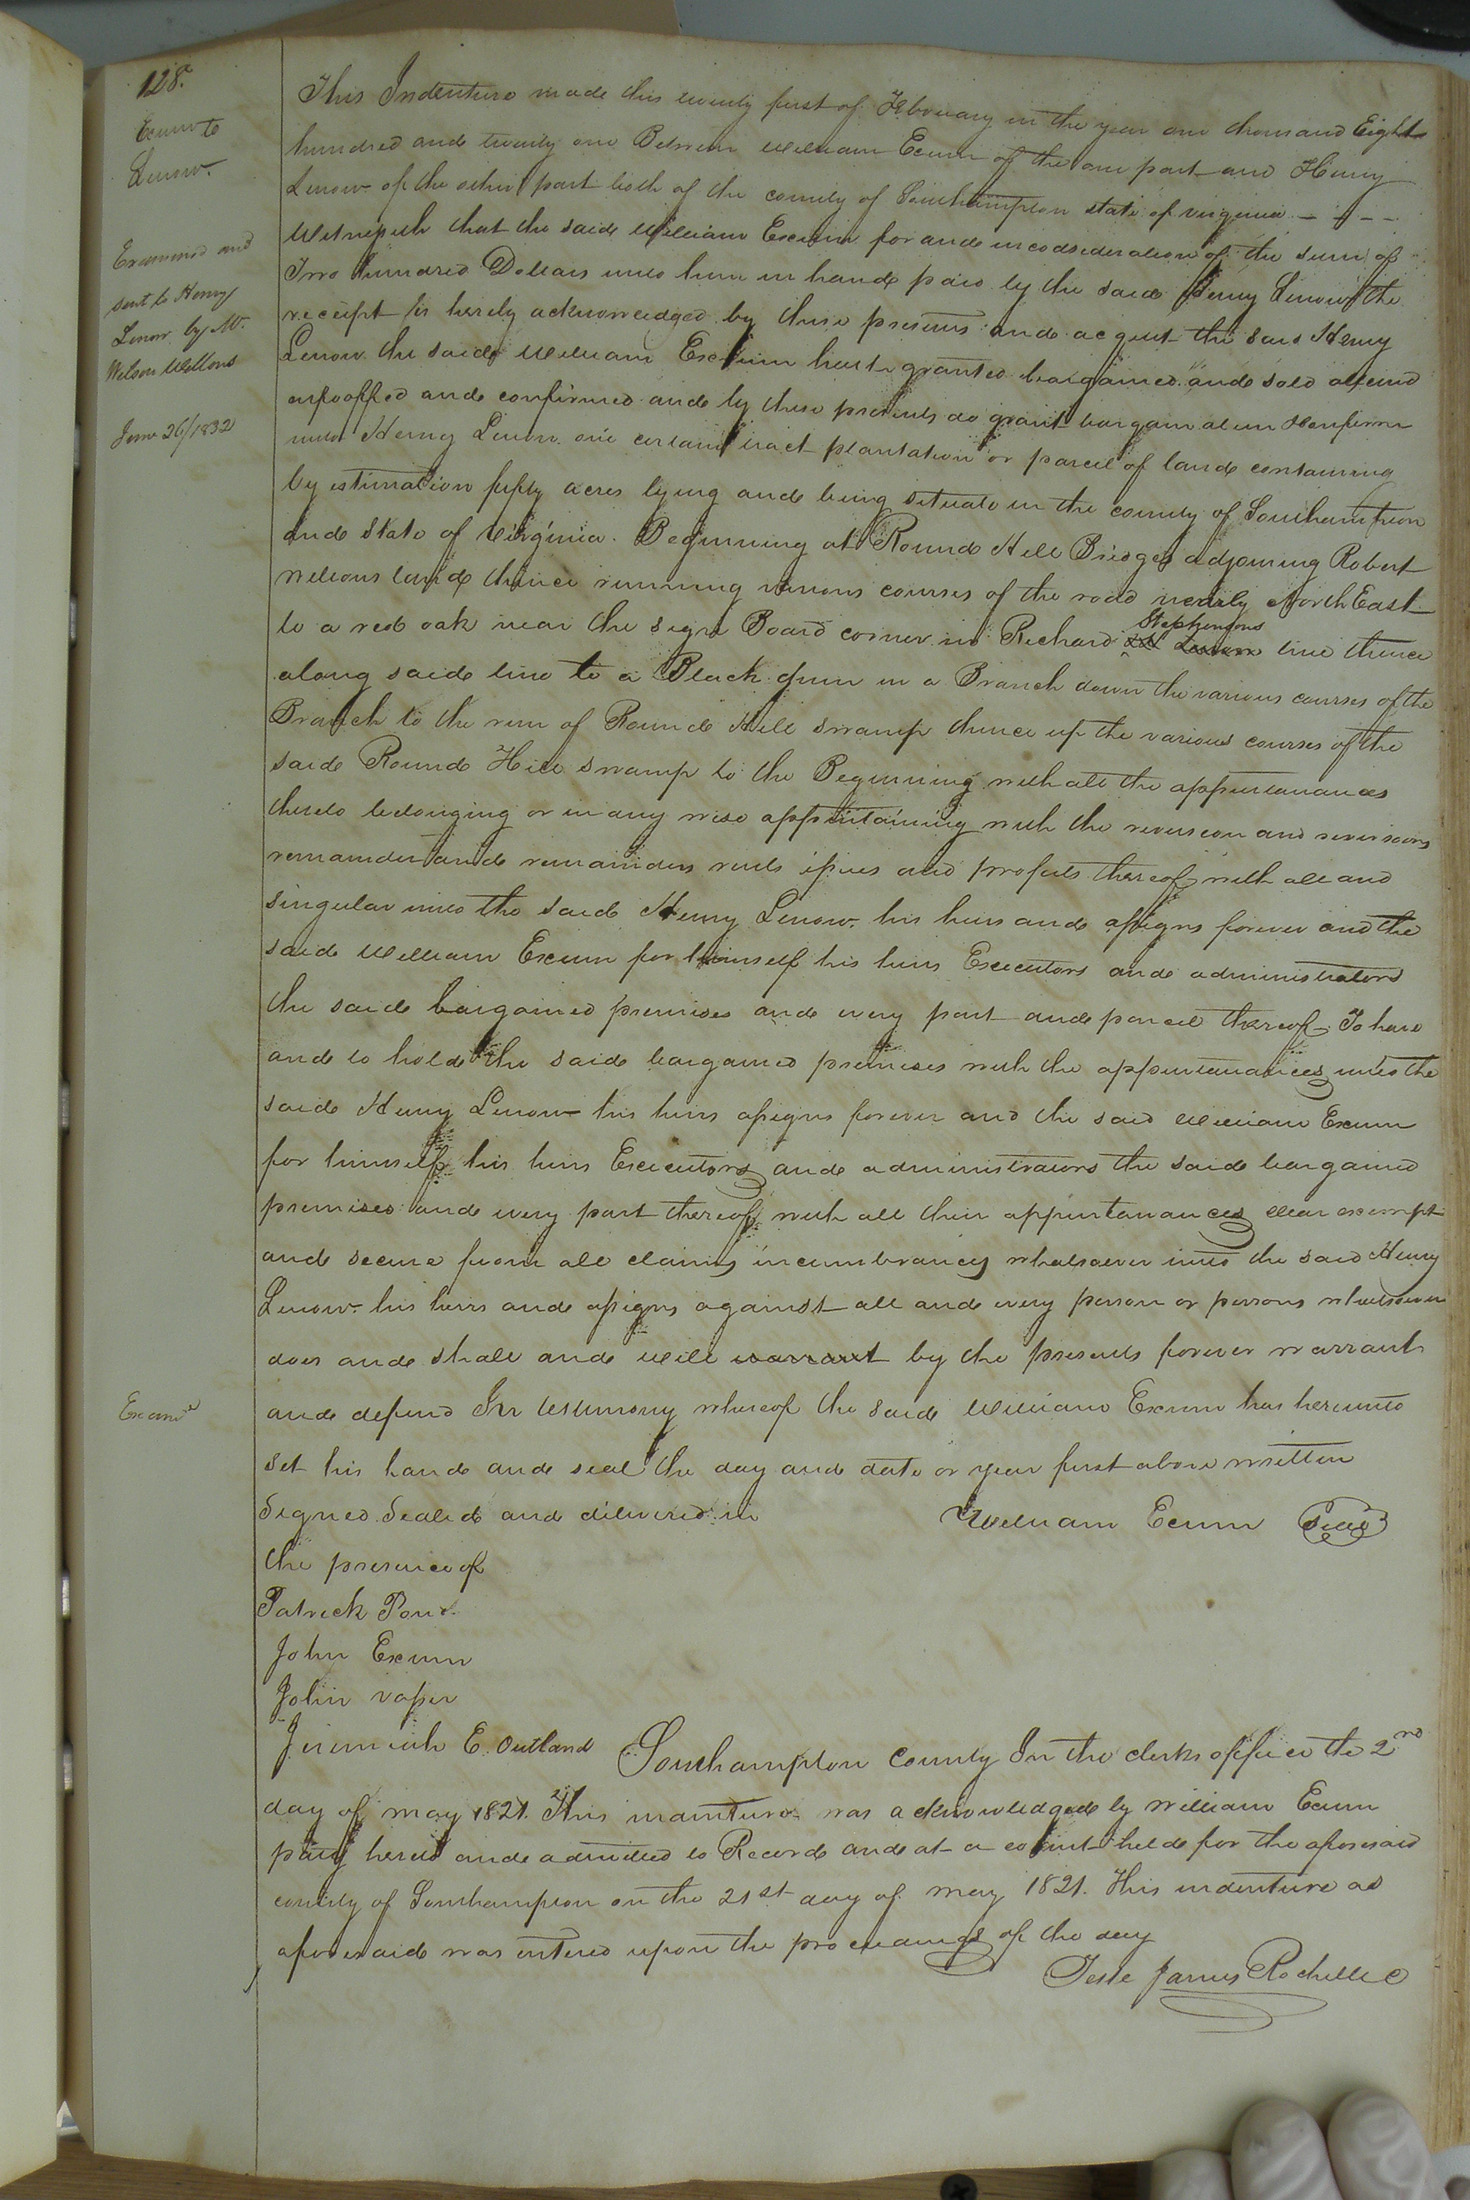 128.
Exum to
Lenow.
Examined and
sent to Henry
Lenow by Mr.
Wilson Wellons
June 26/1832
This Indenture made this twenty first of February in the year one thousand Eight
hundred and twenty one Between William Exum of the one part and Henry
Lenow of the other part both of the county of Southampton state of virginia
Witnesseth that the said William Exum for and in consideration of the sum of
Two hundred Dollars unto him in hand paid by the said Henry Lenow the
receipt is hereby acknowledged by these presents and acquit the said Henry
Lenow the said William Exum hath granted bargained and sold aliend
enfeoffed and confirmed and by these presents do grant bargain alien & confirm
unto Henry Lenow one certain tract plantation or parcel of land containing
by estimation fifty acres lying and being situate in the county of Southampton
and State of Virginia. Beginning at Round Hill Bridge adjoining Robert
land thence running various courses of the road nearly North East
Stephensons
to a red oak near the sign Board corner in Richard line thence
along said line to a Black gum in a Branch down the various courses of the
Branch to the run of Round Hill swamp thence up the various courses of the
said Round Hill swamp to the Beginning with all the appurtanances
thereto belonging or in any wise appertaining with the reversion and reversions
remainder and remainders rents issues and profits thereof with all and
singular unto the said Henry Lenow his heirs and assigns forever and the
said William Exum for himself his heirs Executors and administrators
the said bargained premises and every part and parcel thereof. To have
and to hold the said bargained premises with the appurtanances unto the
said Henry Lenow his heirs assigns forever and the said William Exum
for himself his heirs Executors and administrators the said bargained
premises and every part thereof with all their appurtanances clear exempt
and secure from all claims incumbrances whatsoever unto the said Henry
Lenow his heirs and assigns against all and every person or persons whatsoever
does and shall and will warrant by the presents forever warrant
Examd
and defend In testimony whereof the said William Exum has hereunto
set his hand and seal the day and date or year first above written
Signed Sealed and delivered in
William Exum Seal
the presence of
Patrick Pond
John Exum
John vaser
Jeremiah E. Outland
Southampton County In the clerks office the 2nd
day of may 1821. This indenture was acknowledged by William Exum
party hereto and admitted to Record and at a court held for the aforesaid
county of Southampton on the 21st day of may 1821. This indenture as
aforesaid was entered upon the proceedings of the day
Teste James Rochelle C